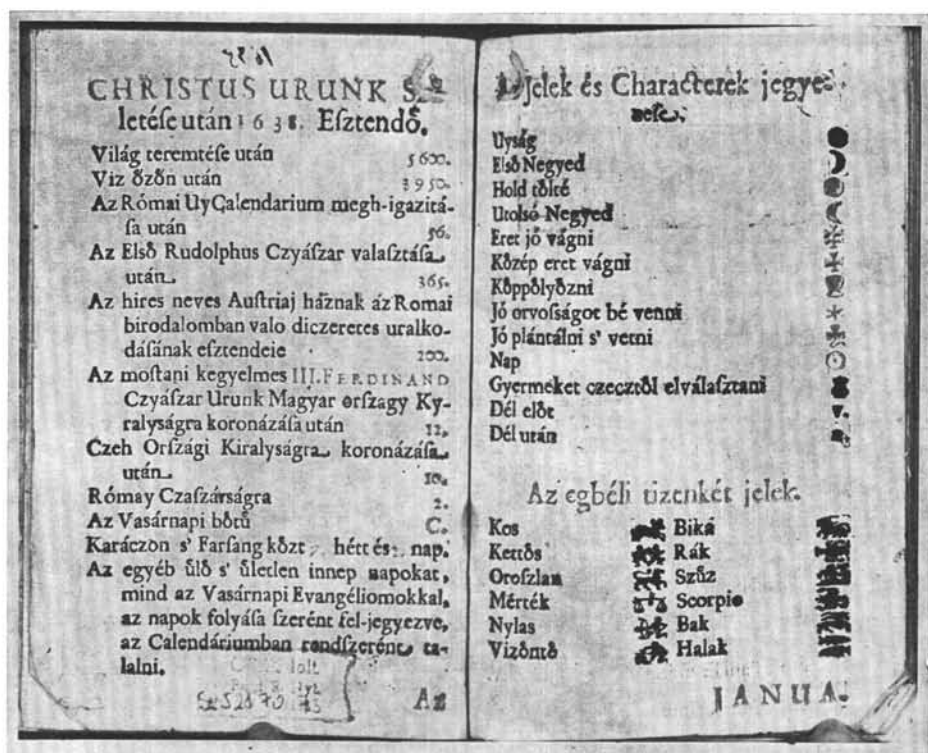 CHRISTUS URUNK S
letéſe után 1638. Eſztendő.
Világ teremtéſe után 5600.
Viz őzőn után 3950.
Az Római Uy Calendarium megh-igazitá-
ſa után 56.
Az Elsô Rudolphus Czyáſzar valaſztáſa
után 365.
Az hires neves Auſtriaj háznak áz Romai
birodalomban valo diczeretes uralko-
dáſának eſztendeie 200.
Az moſtani kegyelmes III. FERDINAND
Czyáſzar Urunk Magyar orſzagy Ky-
ralyságra koronázáſa után 12.
Czeh Orſzági Kiralyságra koronázáſa
után 10.
Római Czaſzárságra 2.
Az Vasárnapi bőtű C.
Karáczon s' Farſang kőzt 7. hétt és 2. nap.
Az egyéb űlő s' űletlen innep napokat,
mind az Vasárnapi Evangéliomokkal,
az napok folyáſa ſzerént fel-jegyezve,
az Calendáriumban rendſzerént ta-
lalni.
Az
Jelek és Characterek jegye-
Uyság
Elsô Negyed
Hold tőlté
Utolsó Negyed
Eret jó vágni
Kőzép eret vágni
Kőppőlyőzni
Jó orvoſságot bé venni
Jó plántálni s' vetni
Nap
Gyermeket czecztől elválaſztani
Dél előt
Dél után
Az egbéli tizenkét jelek.
Kos Bika
Kettős Rák
Oroſzlan Szűz
Mérték Scorpio
Nylas Bak
Vizőntő Halak
JANUA-